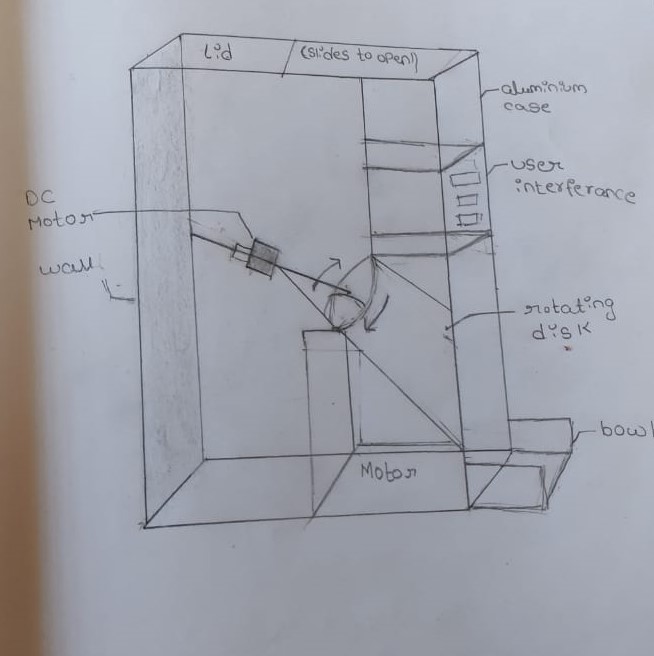 Lid (slides to open!)
aluminium
case
user
interferance
DC
Motor
wall
rotating
disk
bowl
Motor